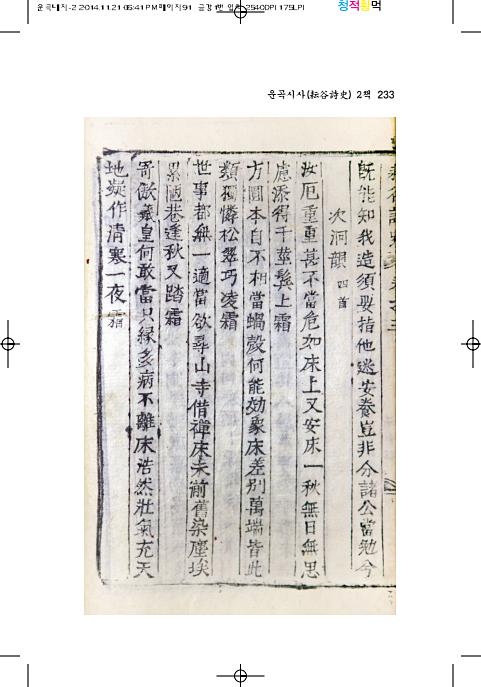 운곡대지-2 2014.11.21 05:41 PM 페이지91
2540DPI 175LPI
청적황먹
운곡시사(耘谷詩史) 2책 233
旣能知我造須要指他迷安養豈非分諸公當勉今
次洞韻 四首
汝厄重重甚不當危如床上又安床一秋無日無思
慮添得千莖鬢上霜
方圓本自不相當蝸殼何能効象床差別萬端皆此
類獨憐松翠巧凌霜
世事都無一適當欲尋山寺借禪床未前舊染塵埃
累陋巷逢秋又踏霜
寄傲羲皇何敢當只緣多病不離床浩然壯氣充天
地疑作淸寒一夜霜